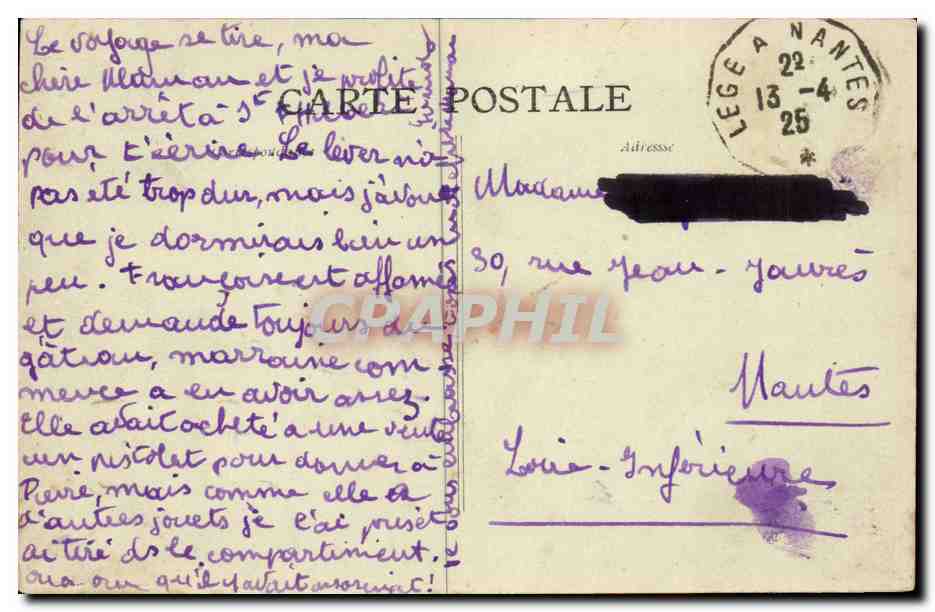 Le voyage se tire, ma
chère Maman et je profite
de l'arrêt à St
pour t'écrire. Le lever n'a
pas été trop dur, mais j'avoue
que je dormirais bien un
peu. François est affamé
et demande toujours du
gâteau, marraine com
mence a en avoir assez.
Elle avait acheté a une vente
un pistolet pour donner à
Pierre, mais comme elle a
d'autres jouets je l'ai pris et
ai tiré ds le compartiment.
qu'il y avait
je vous embrasse
CARTE POSTALE
Correspondance
Adresse
LEGE A NANTES
22
13 -4
25
*
Madame
30, rue Jean-Jaurès
Nantes
Loire-Inférieure
CPAPHIL